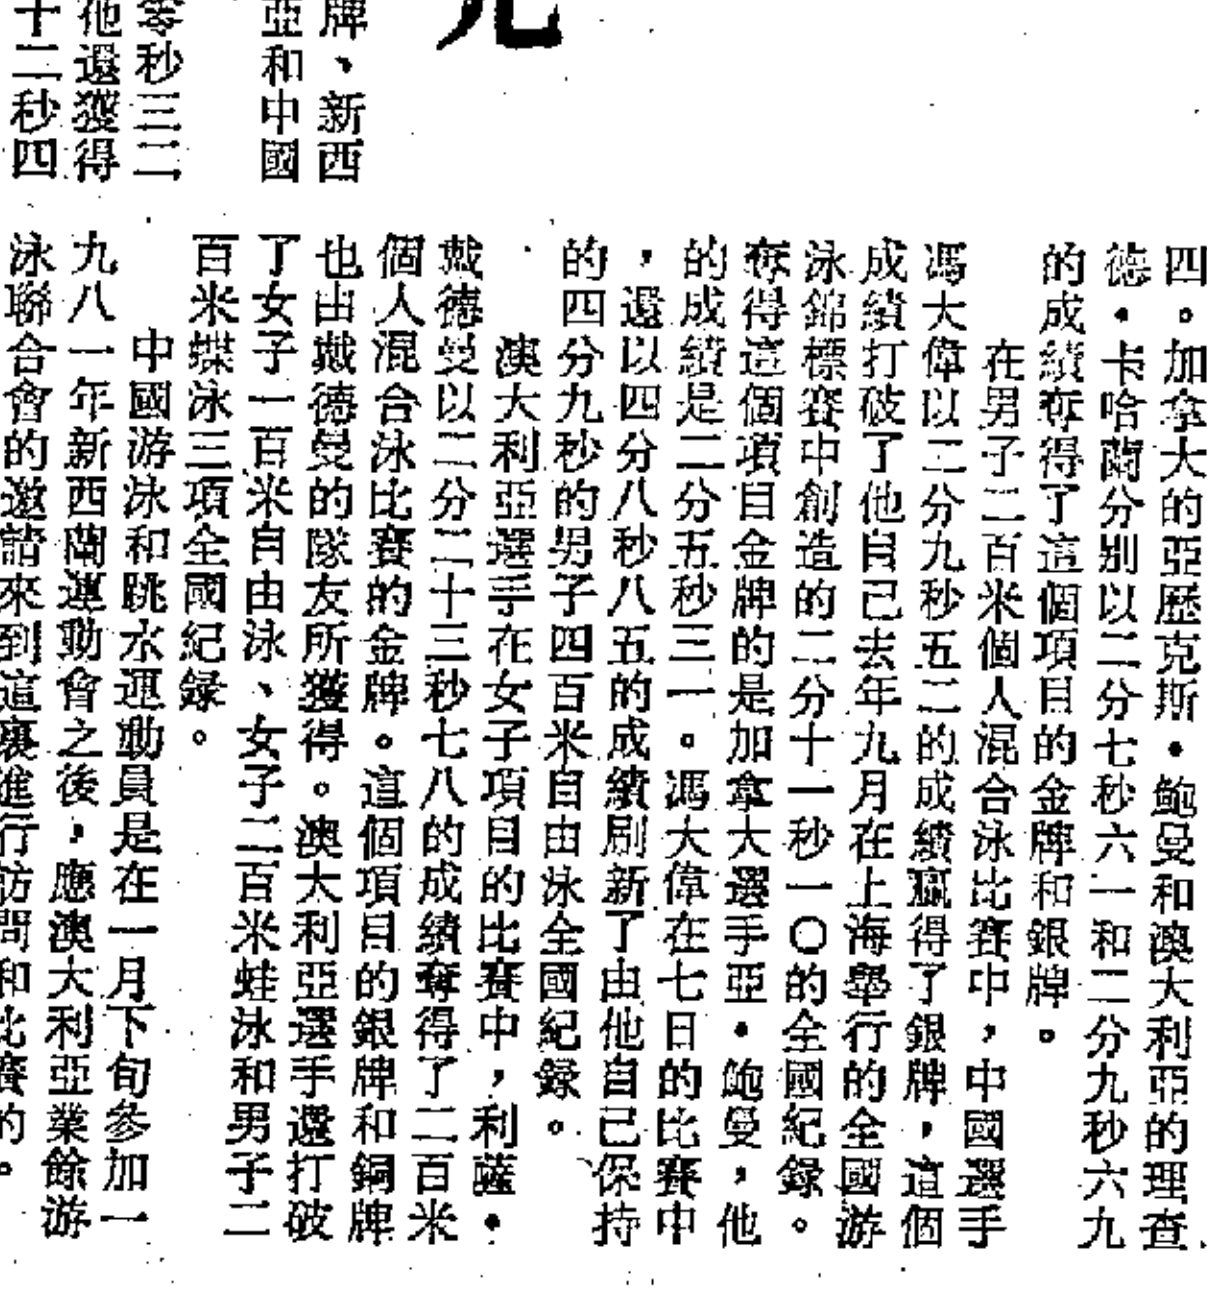 牌、新西
亞和中國
零秒三二
他還獲得
十二秒四
四。加拿大的亞歷克斯·鮑曼和澳大利亞的理查
德·卡哈蘭分別以二分七秒六一和二分九秒六九
的成績奪得了這個項目的金牌和銀牌。
在男子二百米個人混合泳比賽中，中國選手
馮大偉以二分九秒五二的成績贏得了銀牌，這個
成績打破了他自己去年九月在上海舉行的全國游
泳錦標賽中創造的二分十一秒一〇的全國紀錄。
奪得這個項目金牌的是加拿大選手亞·鮑曼，他
的成績是二分五秒三一。馮大偉在七日的比賽中
，還以四分八秒八五的成績刷新了由他自己保持
的四分九秒的男子四百米自由泳全國紀錄。
澳大利亞選手在女子項目的比賽中，利薩·
戴德曼以二分二十三秒七八的成績奪得了二百米
個人混合泳比賽的金牌。這個項目的銀牌和銅牌
也由戴德曼的隊友所獲得。澳大利亞選手還打破
了女子一百米自由泳、女子二百米蛙泳和男子二
百米蝶泳三項全國紀錄。
中國游泳和跳水運動員是在一月下旬參加一
九八一年新西蘭運動會之後，應澳大利亞業餘游
泳聯合會的邀請來到這裏進行訪問和比賽的。